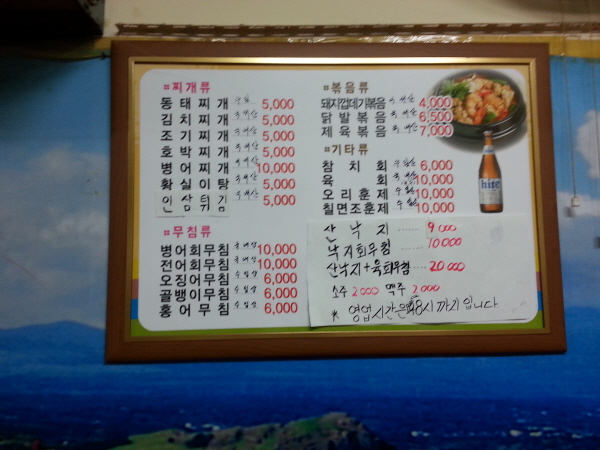 ¤찌개류
동태찌개 수입 5,000
김치찌개 국내산 5,000
조기찌개 국내산 5,000
호박찌개 국내산 5,000
병어찌개 국내산 10,000
황실이탕 국내산 5,000
인삼튀김 5,000
¤무침류
병어회무침 국내산 10,000
전어회무침 국내산 10,000
오징어무침 수입산 6,000
골뱅이무침 수입산 6,000
홍어무침 수입산 6,000
¤볶음류
돼지껍데기볶음 국내산 4,000
닭발볶음 국내산 6,500
제육볶음 국내산 7,000
¤기타류
참치회 수입산 6,000
육회 국내산 10,000
오리훈제 수입산 10,000
칠면조훈제 수입산 10,000
hite
산낙지 ...... 9000
낙지회무침 ...... 10000
산낙지+육회무침 20000
소주 2000 맥주 2000
* 영업시간은 8시까지입니다